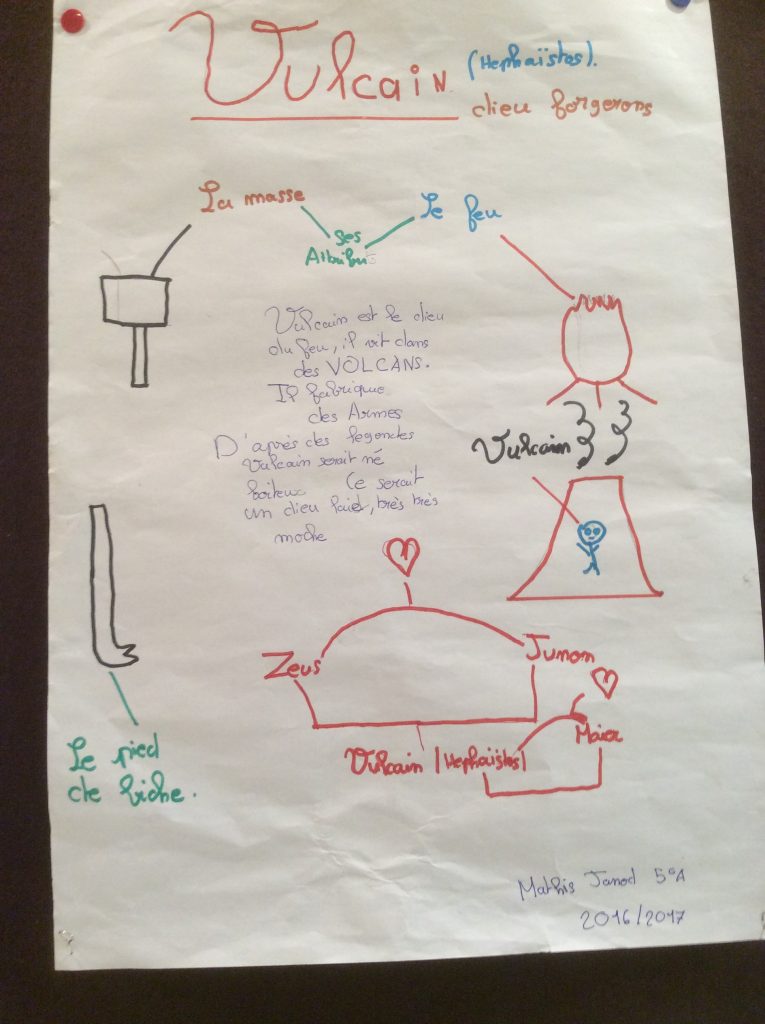 Vulcain (Hephaïstos).
dieu forgerons
La masse
Le feu
Ses
Attributs
Vulcain est le dieu
du feu, il vit dans
des VOLCANS.
Il fabrique
des Armes
D'après des legendes
Vulcain serait né
boiteux Ce serait
un dieu laid, très très
moche
Vulcain
Zeus
Junon
Vulcain (Hephaïstos)
Maia
Le pied
de biche.
Mathis Janod 5°1
2016/2017